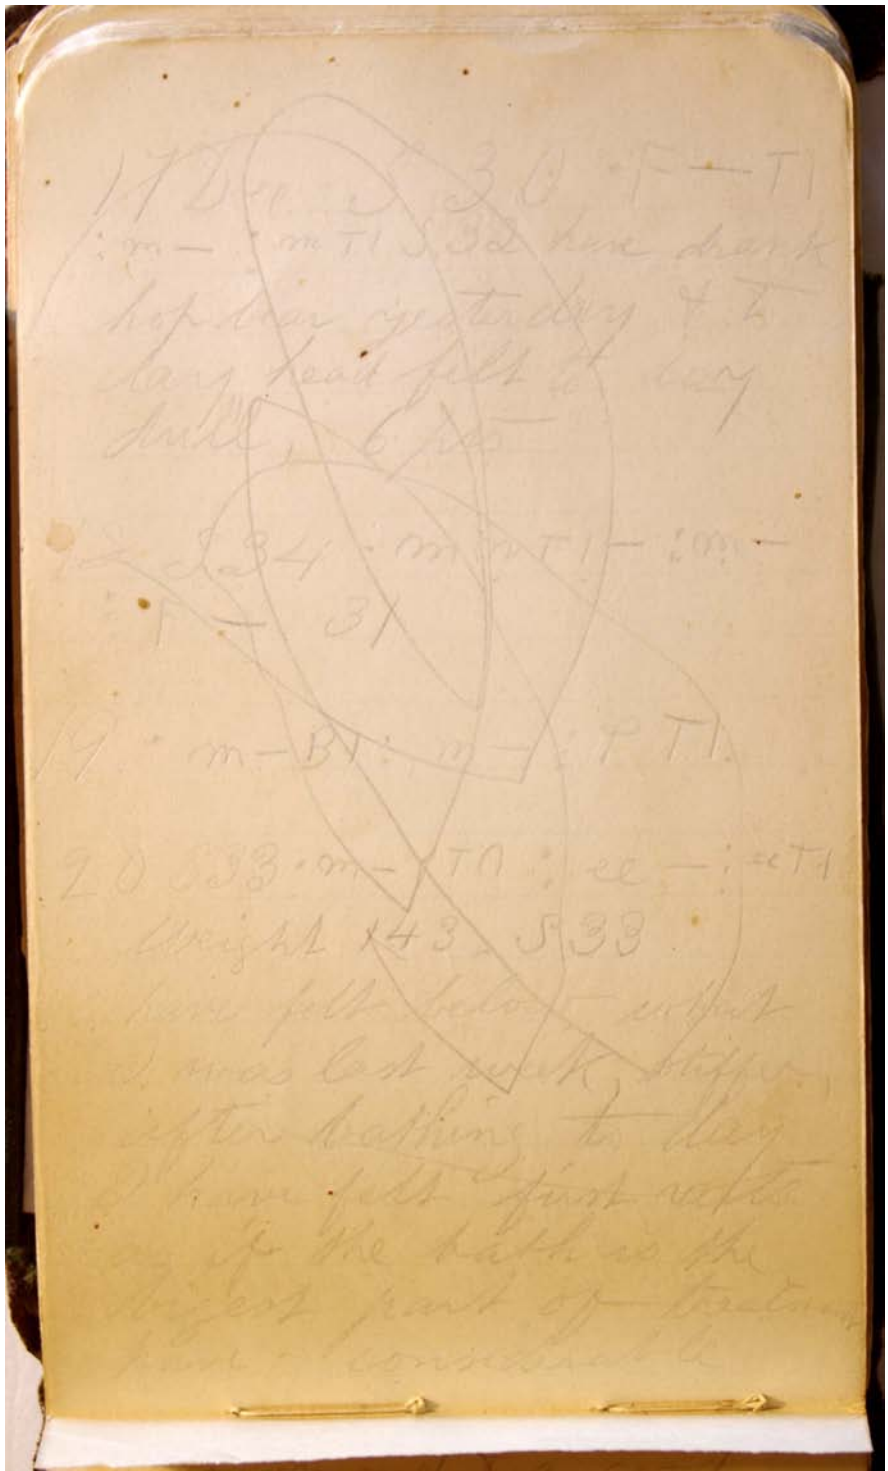 17 Dec S 30 : F — T1
: m — : m T1 S 32 have drank
hop bear yesterday & to
day head felt to day
dull, 6 pts
S 34 : m T1 — : m —
: F — 31
19 : m — B1 : m — : F T1
20 S 33 : m — T1 : ee — : ee T1
Weight 143 S 33
have felt below what
I was last week, stiffer
after bathing to day
I have felt first rate
as if the bath is the
bigest part of treatment
have considerable